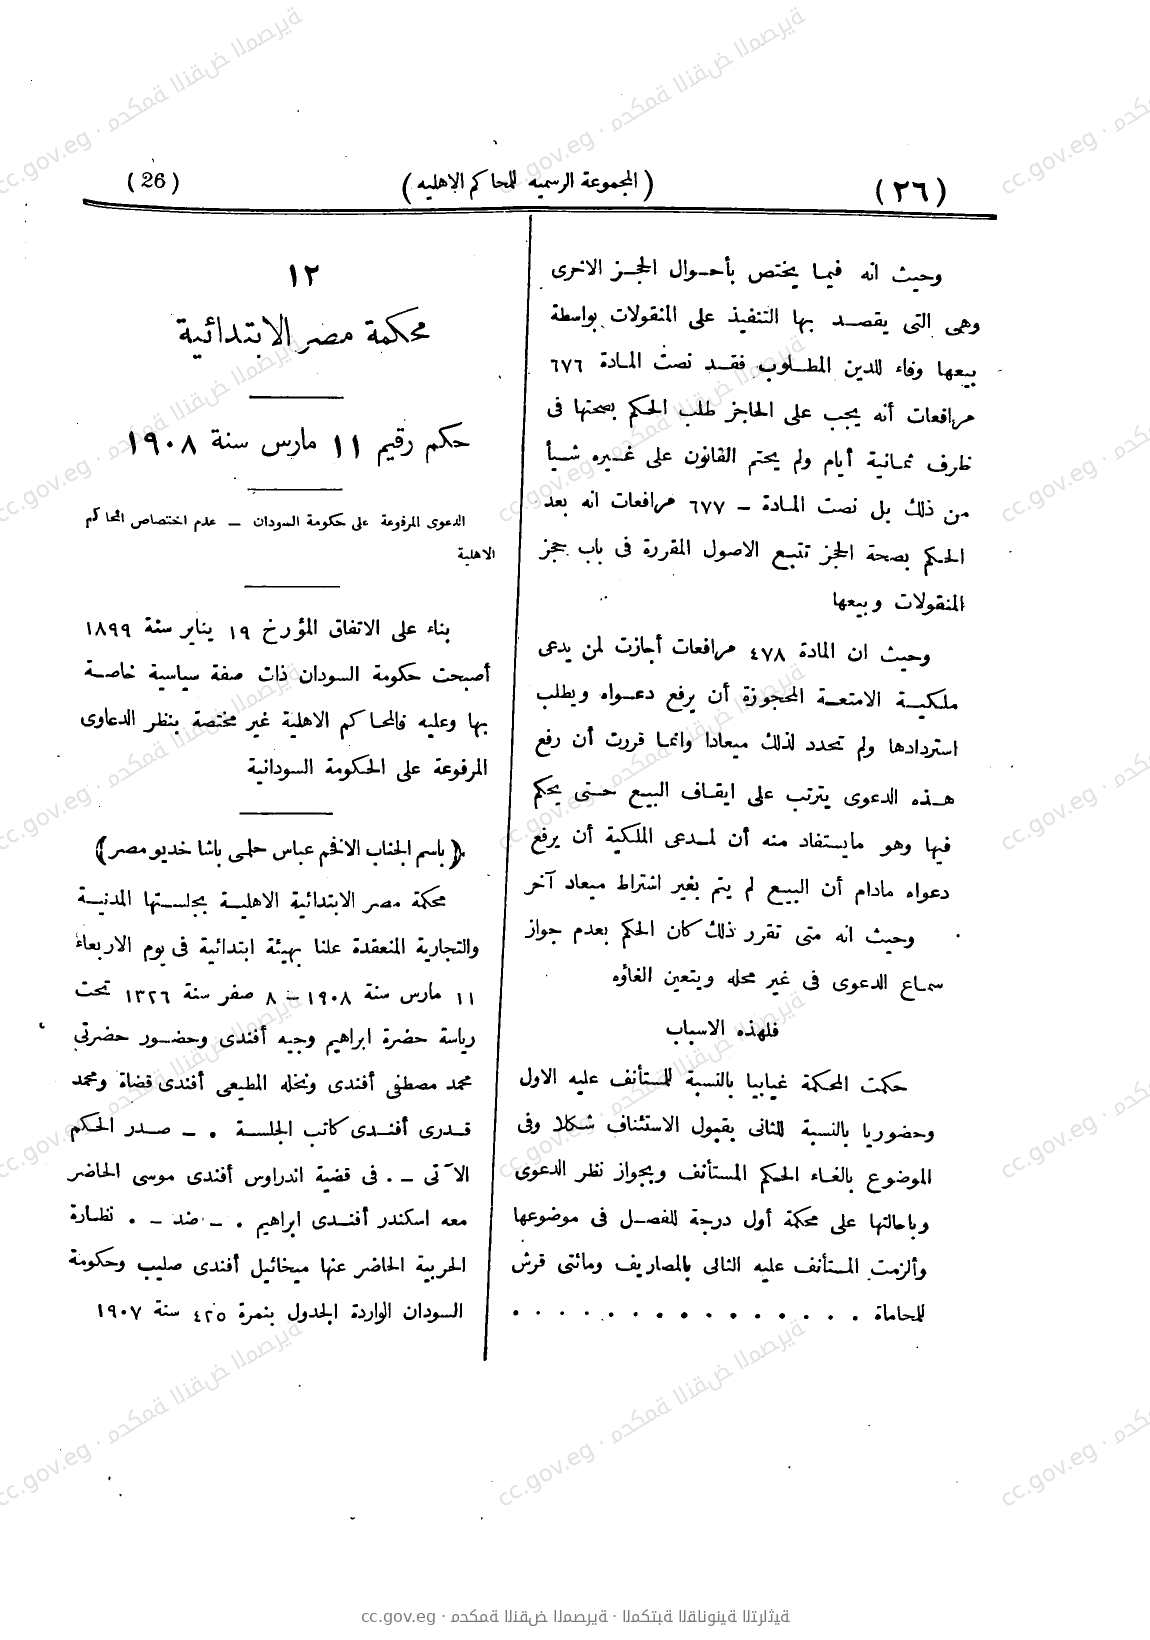 (٢٦)
(المجموعة الرسميه للمحاكم الاهليه)
(26)
وحيث انه فيما يختص بأحوال الحجز الاخرى
وهى التى يقصد بها التنفيذ على المنقولات بواسطة
بيعها وفاء للدين المطلوب فقد نصت المادة ٦٧٦
مرافعات أنه يجب على الحاجز طلب الحكم بصحتها فى
ظرف ثمانية أيام ولم يحتم القانون على غيره شيأ
من ذلك بل نصت المادة – ٦٧٧ مرافعات انه بعد
الحكم بصحة الحجز تتبع الاصول المقررة فى باب حجز
المنقولات وبيعها
وحيث ان المادة ٤٧٨ مرافعات أجازت لمن يدعى
ملكية الامتعة المحجوزة أن يرفع دعواه ويطلب
استردادها ولم تحدد لذلك ميعادا وانما قررت أن رفع
هذه الدعوى يترتب على ايقاف البيع حتى يحكم
فيها وهو مايستفاد منه أن لمدعى الملكية أن يرفع
دعواه مادام أن البيع لم يتم بغير اشتراط ميعاد آخر
وحيث انه متى تقرر ذلك كان الحكم بعدم جواز
سماع الدعوى فى غير محله ويتعين الغاؤه
فلهذه الاسباب
حكمت المحكمة غيابيا بالنسبة للمستأنف عليه الاول
وحضوريا بالنسبة للثانى بقبول الاستئناف شكلا وفى
الموضوع بالغاء الحكم المستأنف وبجواز نظر الدعوى
وباحالتها على محكمة أول درجة للفصل فى موضوعها
وألزمت المستأنف عليه الثانى بالمصاريف ومائتى قرش
للمحاماة . . . . . . . . . . . . . . .
١٢
محكمة مصر الابتدائية
حكم رقيم ١١ مارس سنة ١٩٠٨
الدعوى المرفوعة على حكومة السودان – عدم اختصاص المحاكم
الاهلية
بناء على الاتفاق المؤرخ ١٩ يناير سنة ١٨٩٩
أصبحت حكومة السودان ذات صفة سياسية خاصة
بها وعليه فالمحاكم الاهلية غير مختصة بنظر الدعاوى
المرفوعة على الحكومة السودانية
(باسم الجناب الافخم عباس حلمى باشا خديو مصر)
محكمة مصر الابتدائية الاهلية بجلستها المدنية
والتجارية المنعقدة علنا بهيئة ابتدائية فى يوم الاربعاء
١١ مارس سنة ١٩٠٨ – ٨ صفر سنة ١٣٢٦ تحت
رياسة حضرة ابراهيم وجيه أفندى وحضور حضرتي
محمد مصطفى أفندى ونخله المطيعى أفندى قضاة ومحمد
قدرى أفندى كاتب الجلسة . – صدر الحكم
الآتى – . فى قضية اندراوس أفندى موسى الحاضر
معه اسكندر أفندى ابراهيم . – ضد – . نظارة
الحربية الحاضر عنها ميخائيل أفندى صليب وحكومة
السودان الواردة الجدول بنمرة ٤٢٥ سنة ١٩٠٧
cc.gov.eg · محكمة النقض المصرية · المكتبة القانونية التراثية